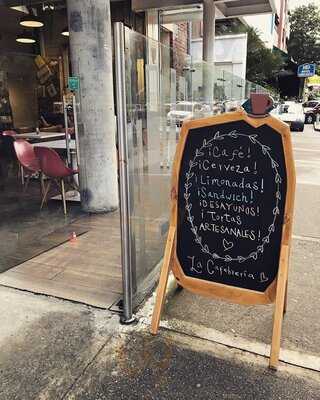 ¡Café!
¡Cerveza!
¡Limonadas!
¡Sandwich!
¡DESAYUNOS!
¡Tortas
ARTESANALES!
La Cafebrería